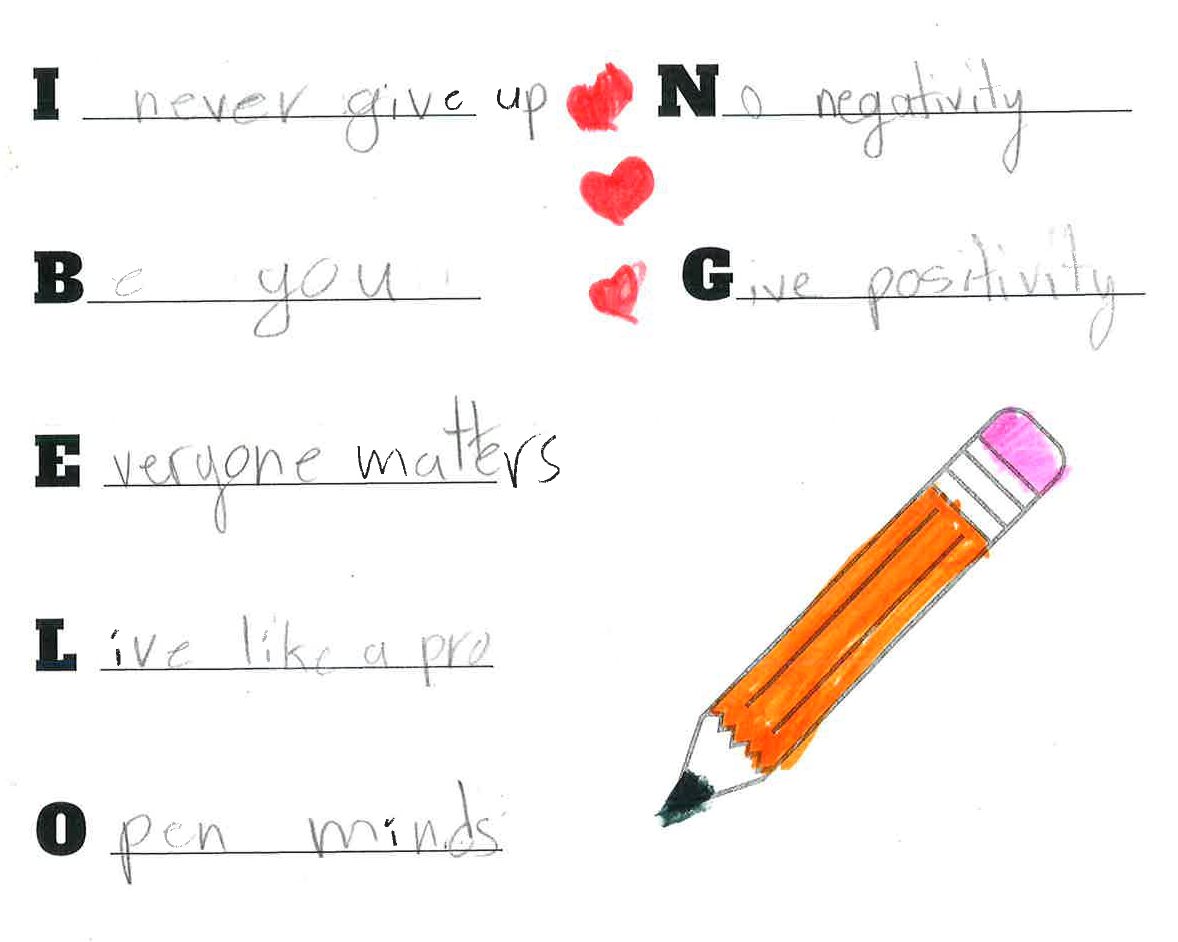 I never give up
Be you
Everyone matters
Live like a pro
Open minds
No negativity
Give positivity